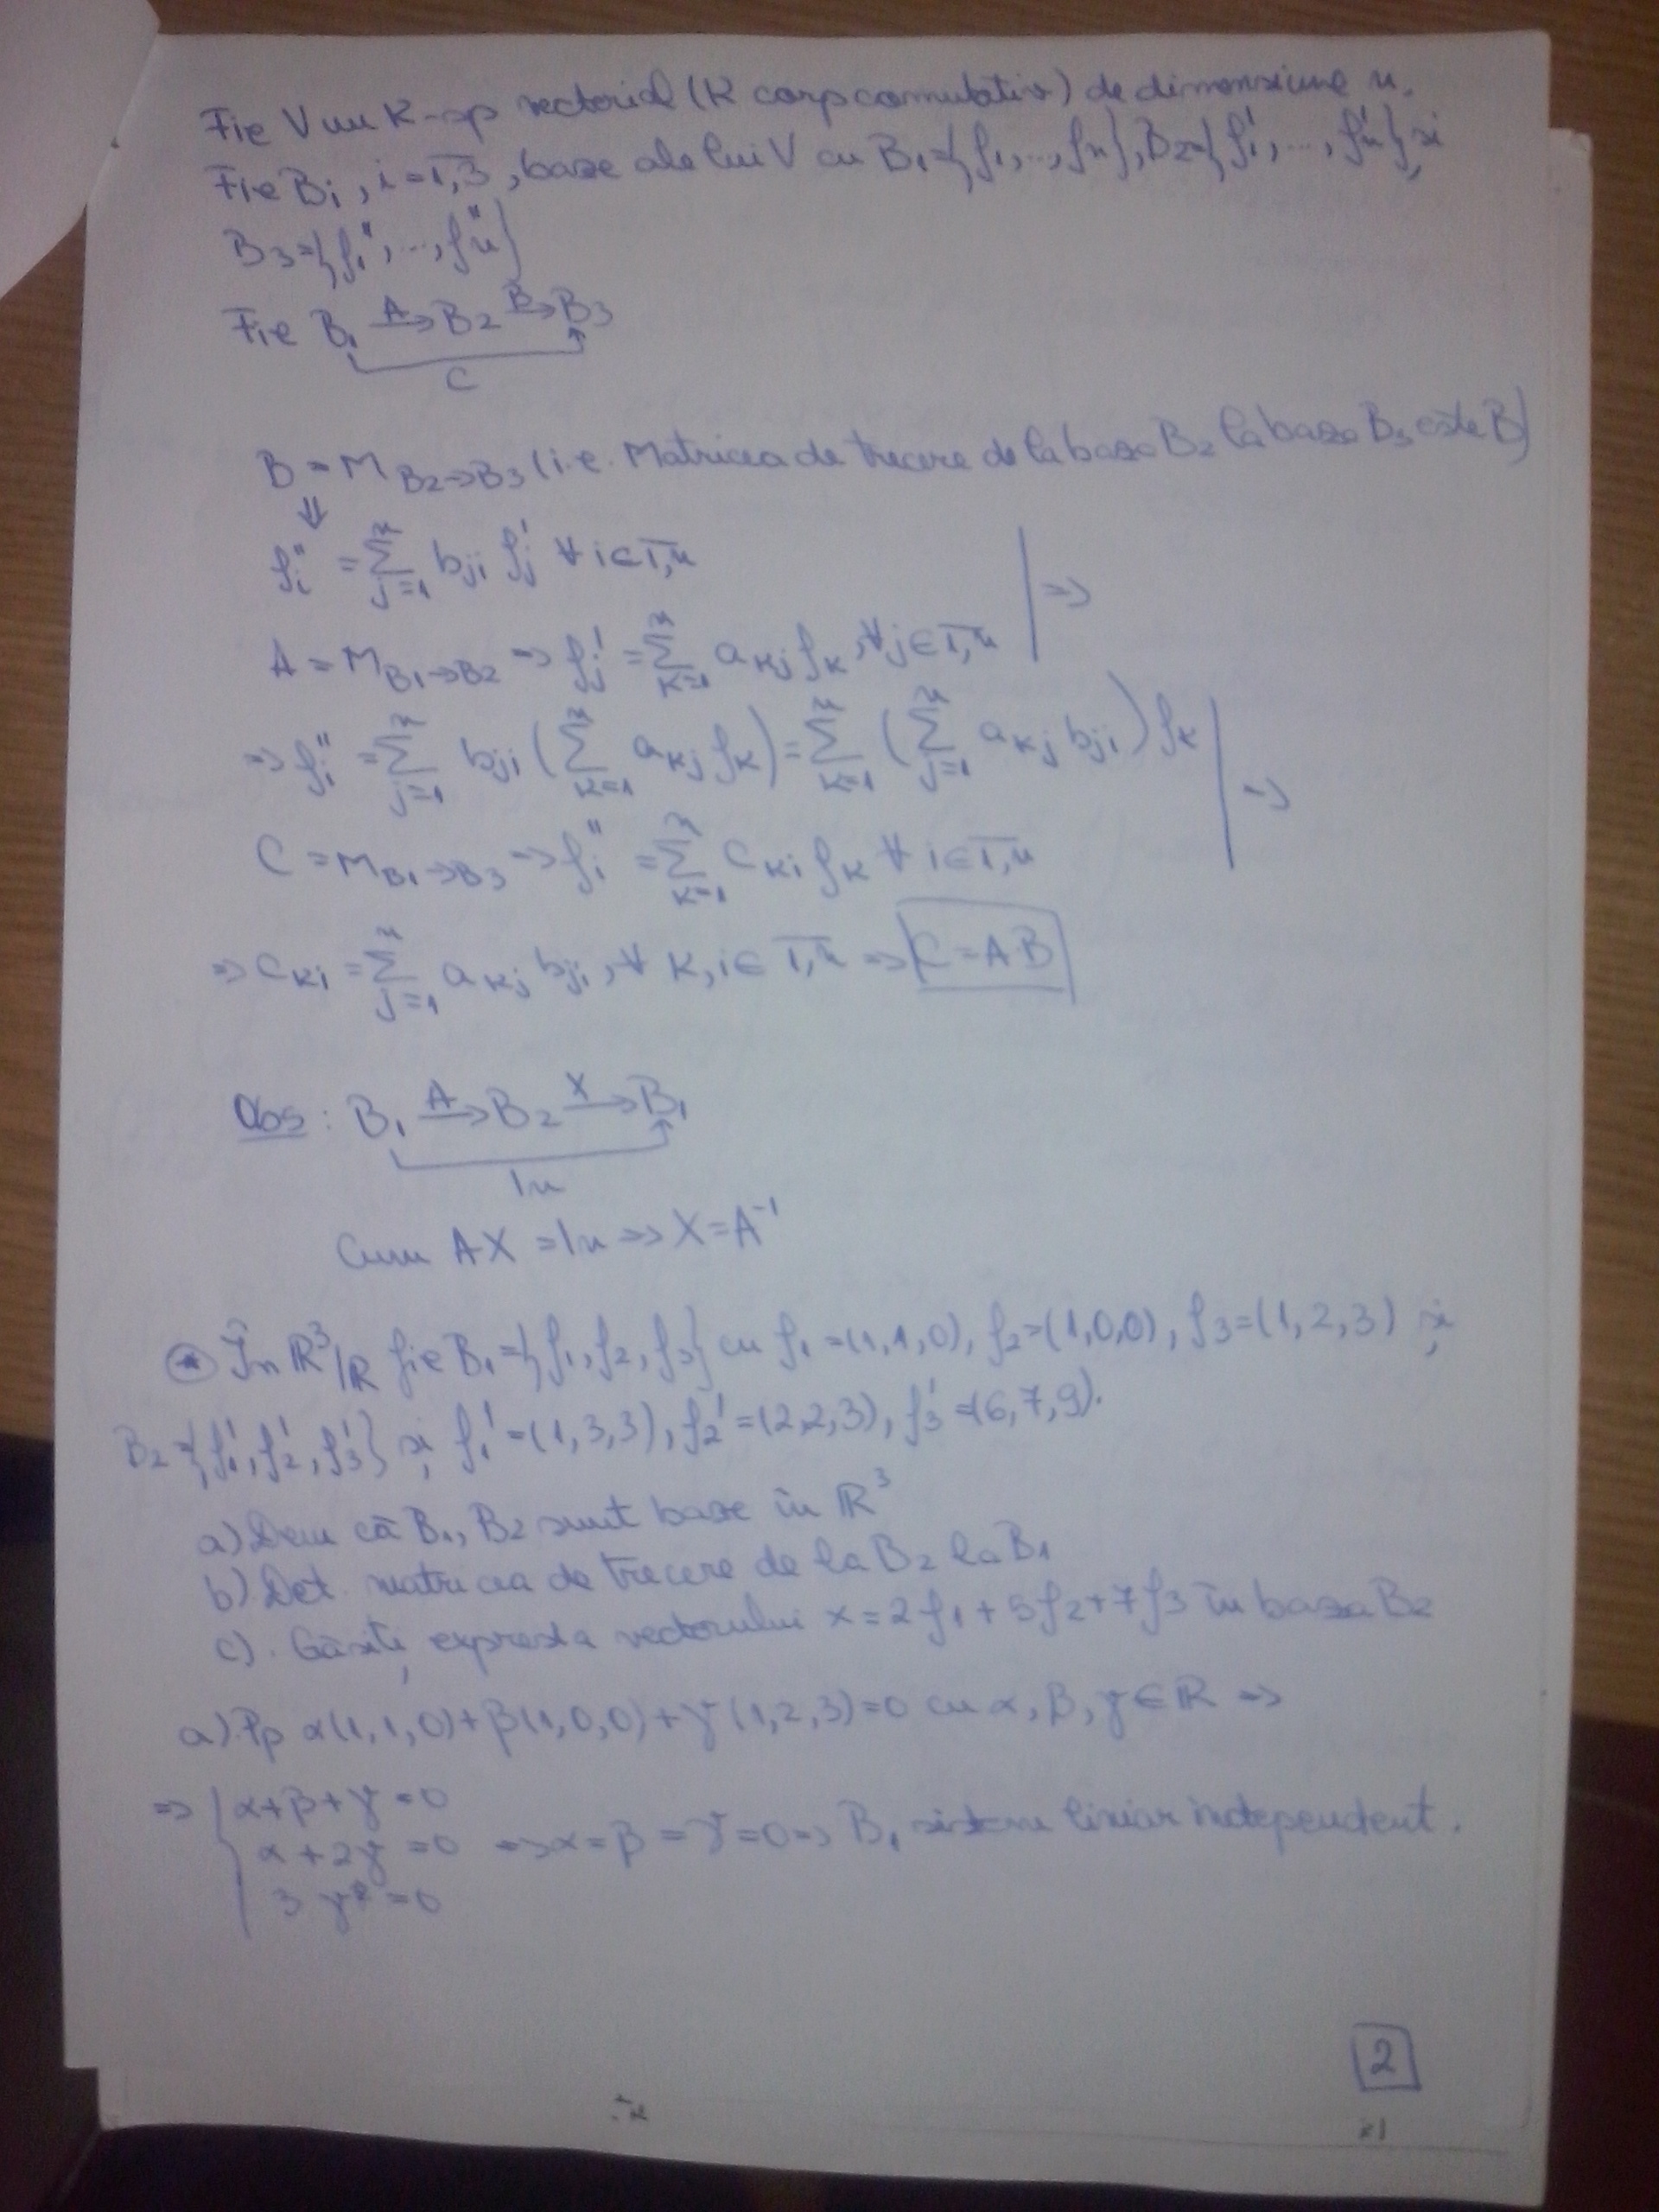 Fie V un K-sp vectorial (K corp comutativ) de dimensiune n.
Fie Bi, i=1,3, baze ale lui V cu B1={f1,...,fn}, B2={f1',...,fn'} și
B3={f1'',...,fn''}
Fie B1 -A-> B2 -B-> B3
C
B = M B2→B3 (i.e. Matricea de trecere de la baza B2 la baza B3 este B)
⇓
fi'' = Σ_{j=1}^{n} bji fj' ∀ i∈1,n
A = M B1→B2 ⇒ fj' = Σ_{k=1}^{n} akj fk, ∀j∈1,n | ⇒
⇒ fi'' = Σ_{j=1}^{n} bji (Σ_{k=1}^{n} akj fk) = Σ_{k=1}^{n} (Σ_{j=1}^{n} akj bji) fk | ⇒
C = M B1→B3 ⇒ fi'' = Σ_{k=1}^{n} cki fk ∀ i∈1,n
⇒ cki = Σ_{j=1}^{n} akj bji, ∀ k,i∈ 1,n ⇒ C=AB
Obs: B1 -A-> B2 -X-> B1
In
Cum AX = In ⇒ X=A⁻¹
* În ℝ³/ℝ fie B1={f1,f2,f3} cu f1=(1,1,0), f2=(1,0,0), f3=(1,2,3) și
B2={f1',f2',f3'} și f1'=(1,3,3), f2'=(2,2,3), f3'=(6,7,9).
a) Dem că B1, B2 sunt baze în ℝ³
b) Det. matricea de trecere de la B2 la B1
c). Găsiți expresia vectorului x=2f1+5f2+7f3 în baza B2
a) Pp α(1,1,0)+β(1,0,0)+γ(1,2,3)=0 cu α,β,γ∈ℝ ⇒
⇒ { α+β+γ=0
α+2γ=0 ⇒ α=β=γ=0 ⇒ B1 sistem liniar independent.
3γ=0
2